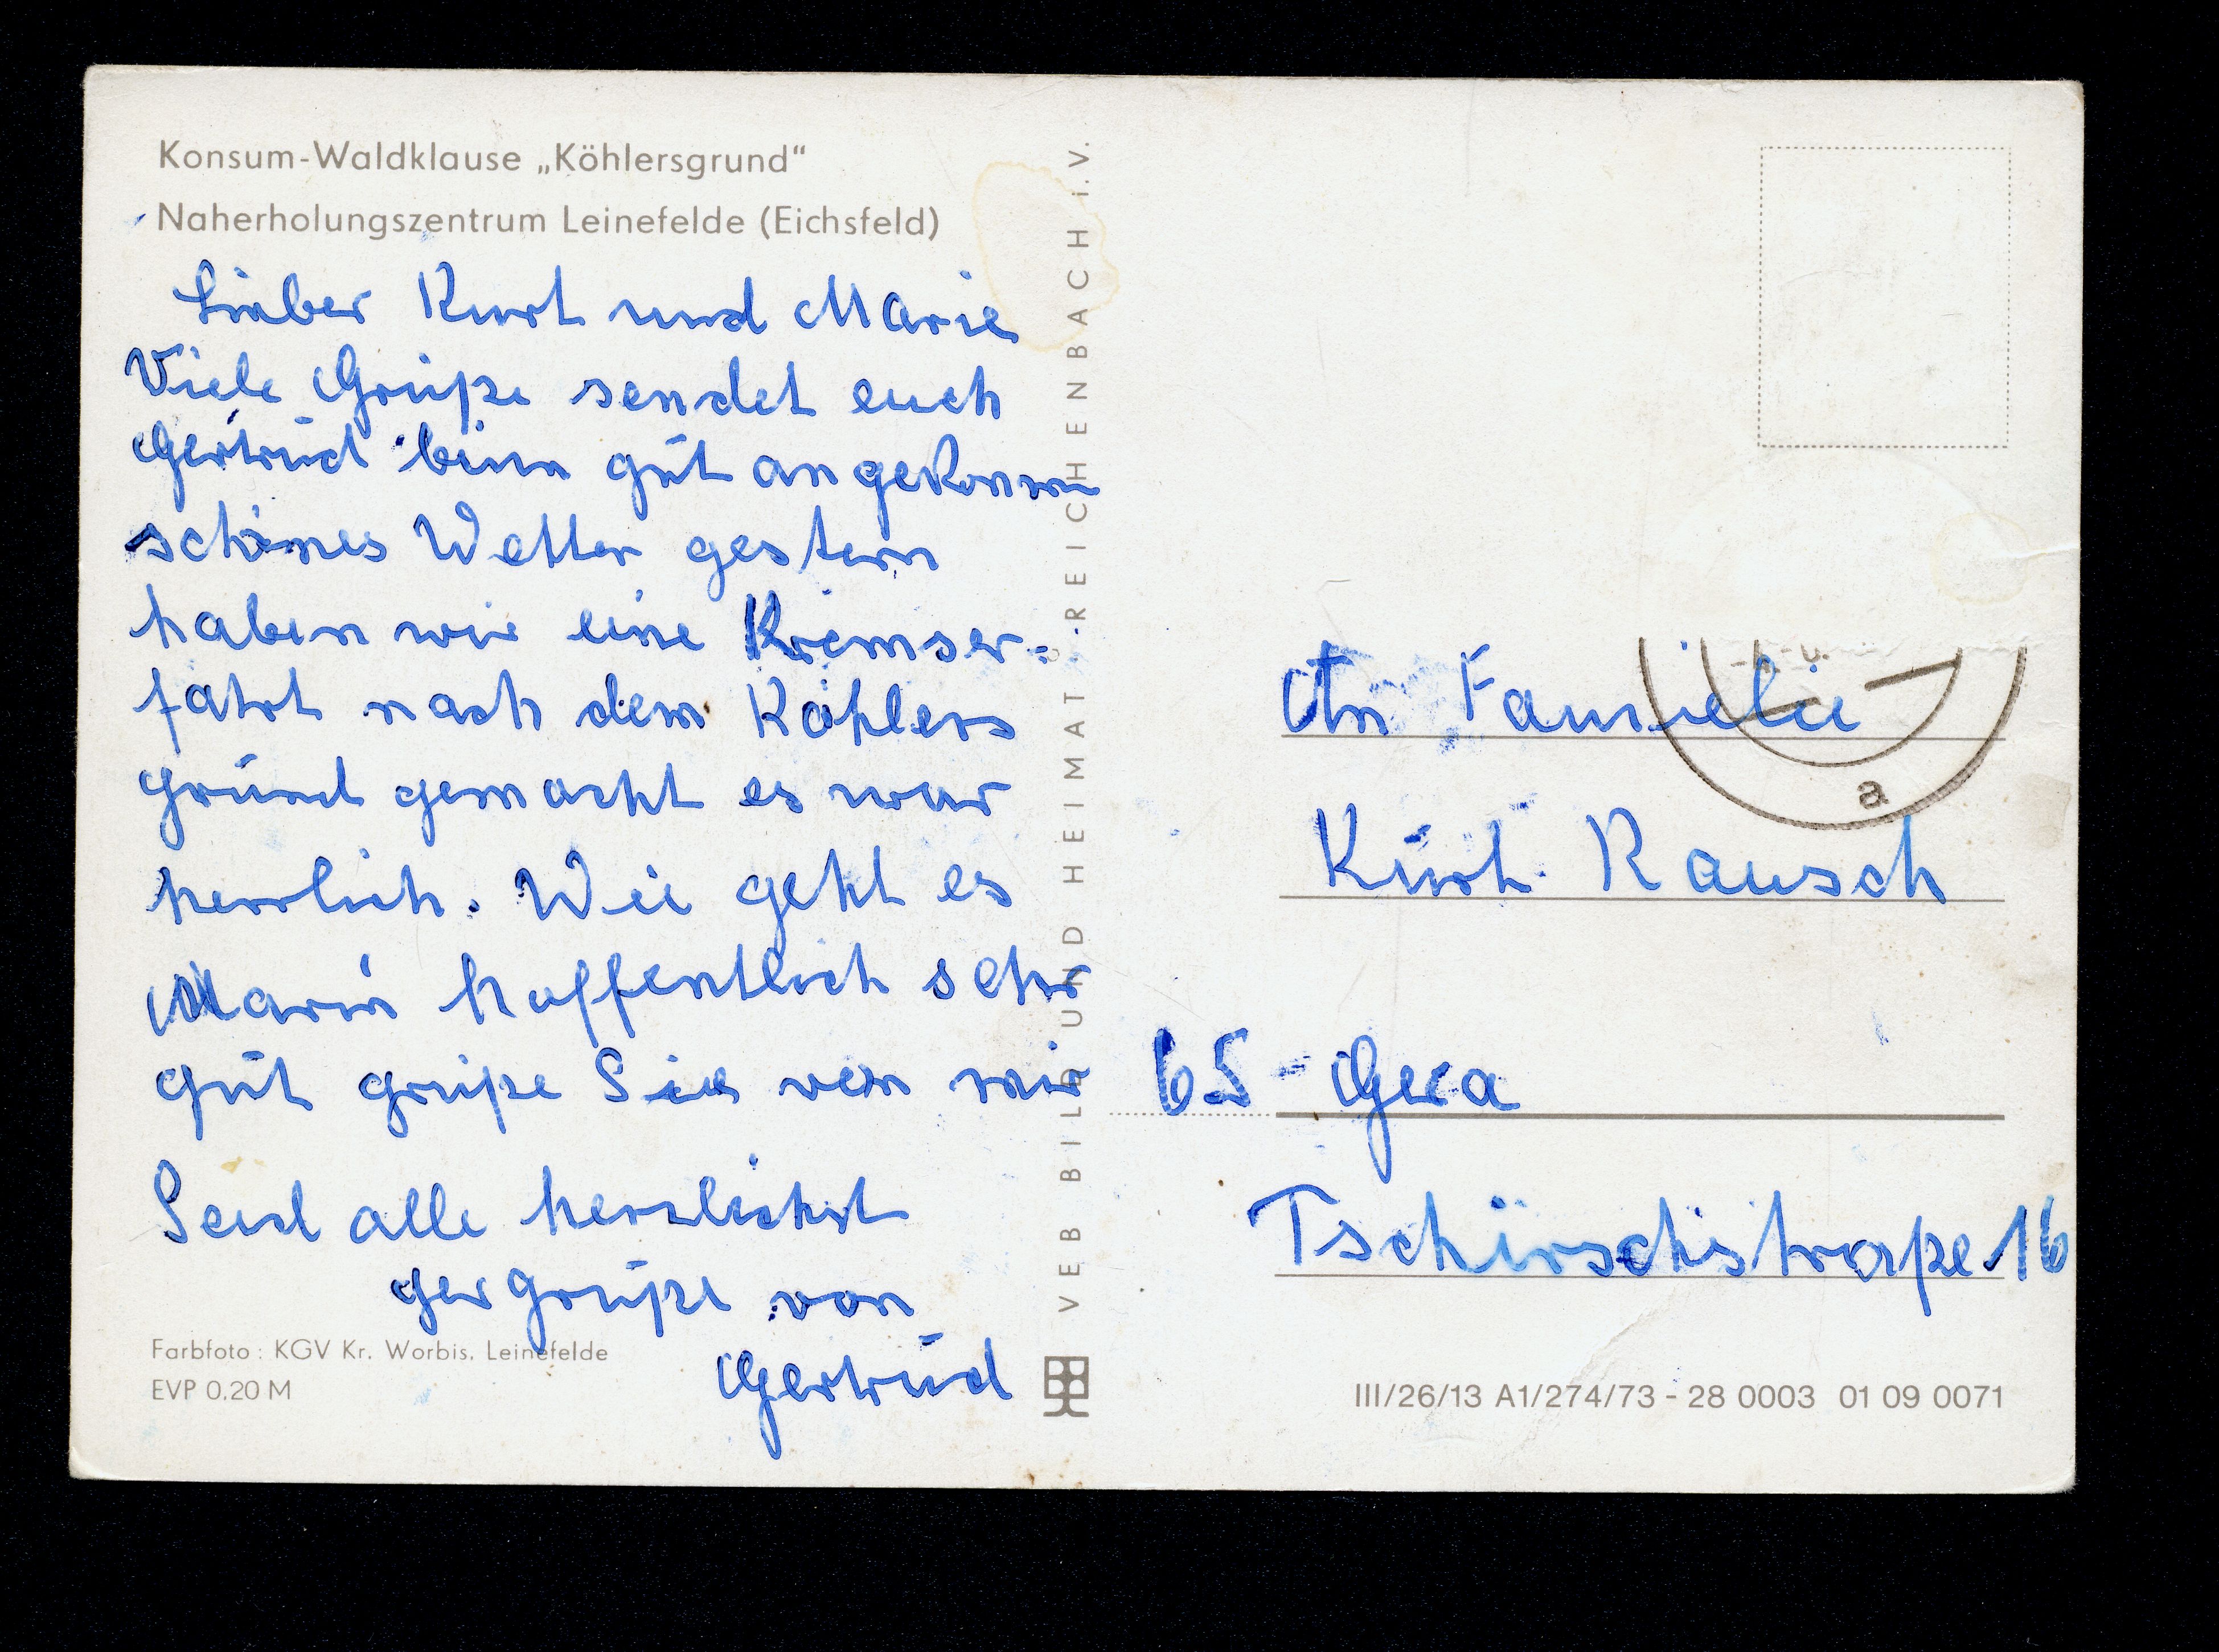 Konsum-Waldklause „Köhlersgrund“
Naherholungszentrum Leinefelde (Eichsfeld)
Lieber Kurt und Marie
Viele Grüße sendet euch
Gertrud binn gut angekomm
schönes Wetter gestern
haben wir eine Kremser-
fahrt nach dem Köhlers
grund gemacht es war
herrlich. Wie geht es
Marie hoffentlich sehr
gut grüße Sie von mir
Seid alle herzlichst
gegrüßt von
Gertrud
Farbfoto: KGV Kr. Worbis, Leinefelde
EVP 0,20 M
VEB BILD UND HEIMAT REICHENBACH i.V.
An Familie
Kurt Rausch
65 - Gera
Tschirschstraße 16
a
III/26/13 A1/274/73 - 28 0003 01 09 0071